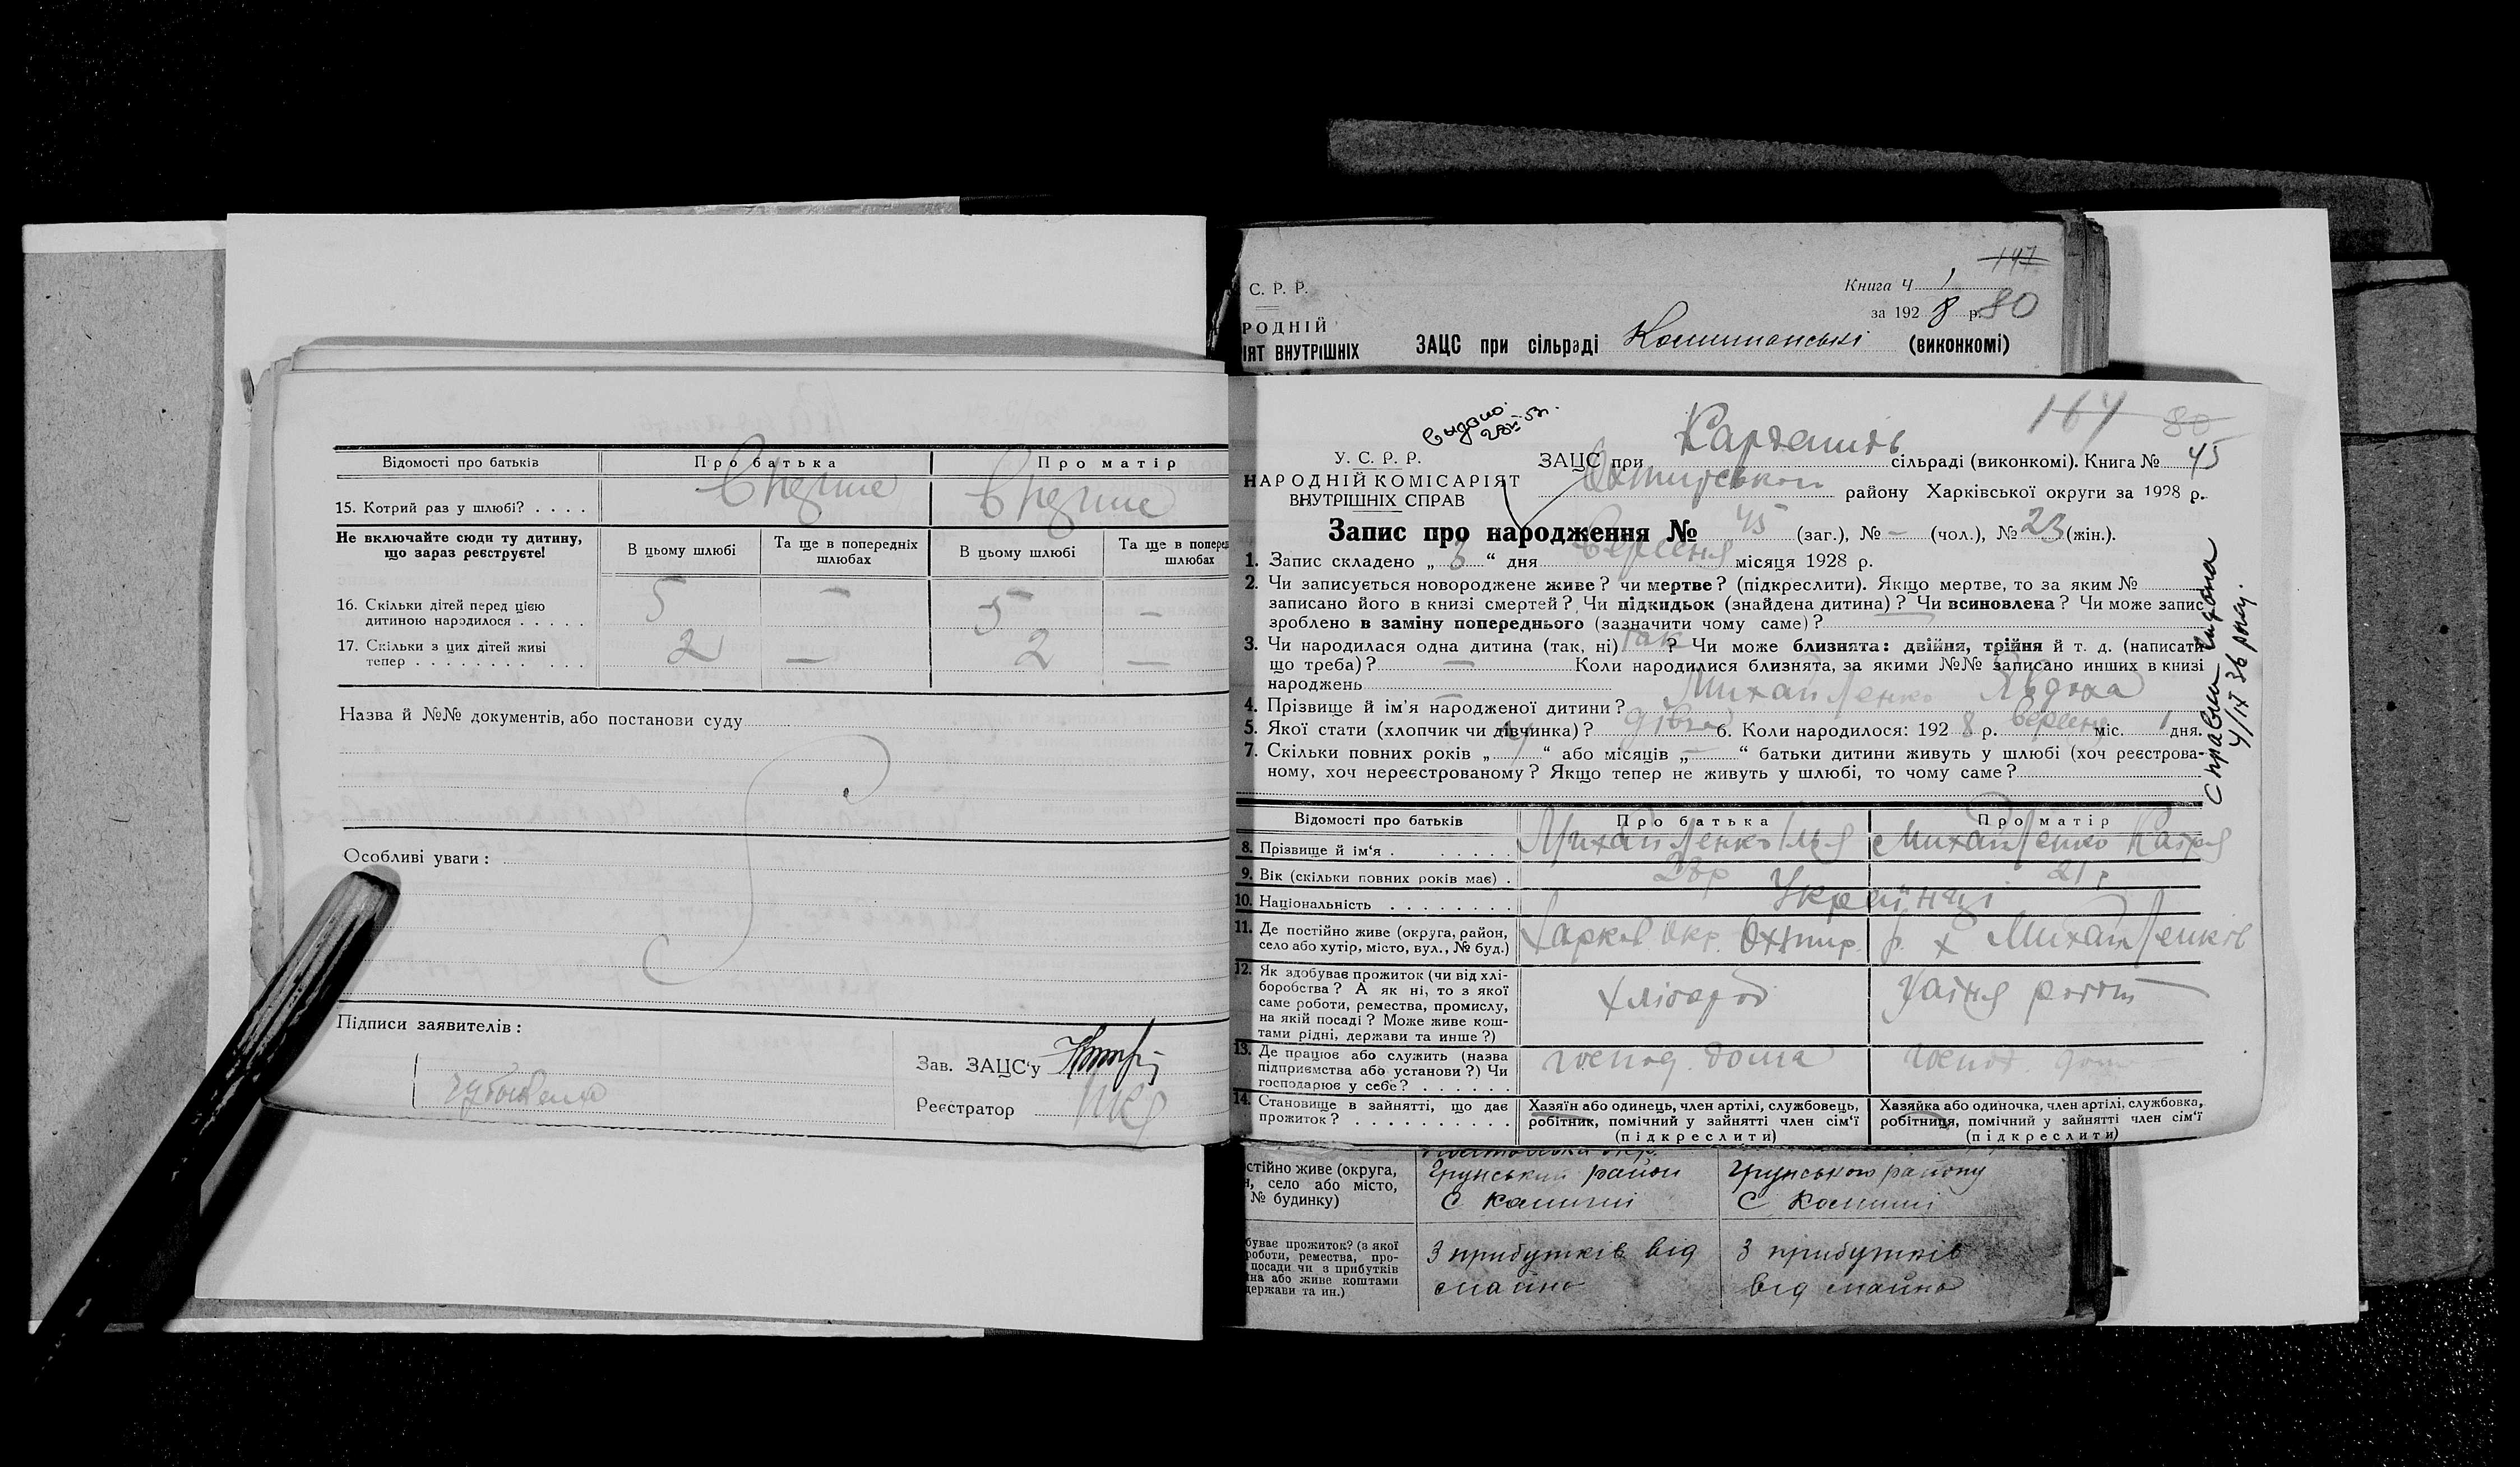 Відомості про батьків
Про батька
Про матір
15. Котрий раз у шлюбі? . . . .
Вперше
Вперше
Не включайте сюди ту дитину,
що зараз реєструєте!
В цьому шлюбі
Та ще в попередніх
шлюбах
В цьому шлюбі
Та ще в поперед
шлюбах
16. Скільки дітей перед цією
дитиною народилося . . . . .
5 — 5 —
17. Скільки з цих дітей живі
тепер . . . . . . . . . . .
2 — 2 —
Назва й №№ документів, або постанови суду
Особливі уваги:
Підписи заявителів:
Зав. ЗАЦС'у
Реєстратор
147
С. Р. Р.
Книга Ч 1
за 1928 р. 80
РОДНІЙ
ІЯТ ВНУТРІШНІХ
ЗАЦС при сільраді (виконкомі)
164 80
У. С. Р. Р.
НАРОДНІЙ КОМІСАРІЯТ
ВНУТРІШНІХ СПРАВ
ЗАЦС при сільраді (виконкомі). Книга № 45
району Харківської округи за 1928 р.
Запис про народження № 45 (заг.), № – (чол.), № 23 (жін.).
1. Запис складено „ 3 “ дня вересня місяця 1928 р.
2. Чи записується новороджене живе? чи мертве? (підкреслити). Якщо мертве, то за яким №
записано його в книзі смертей? Чи підкидьок (знайдена дитина)? Чи всиновлена? Чи може запис
зроблено в заміну попереднього (зазначити чому саме)?
3. Чи народилася одна дитина (так, ні) так ? Чи може близнята: двійня, трійня й т. д. (написати
що треба)? — Коли народилися близнята, за якими №№ записано инших в книзі
народжень
4. Прізвище й ім'я народженої дитини? Михайленко Явдоха
5. Якої стати (хлопчик чи дівчинка)? дівча 6. Коли народилося: 1928 р. вересня міс. 1 дня.
7. Скільки повних років „ 4 “ або місяців „ — “ батьки дитини живуть у шлюбі (хоч реєстрова-
ному, хоч нереєстрованому? Якщо тепер не живуть у шлюбі, то чому саме?
4/ІХ 36 року.
Відомості про батьків
Про батька
Про матір
8. Прізвище й ім'я . . . . . . . .
Михайленко Ілья
Михайленко Катря
9. Вік (скільки повних років має) .
21 р
10. Національність . . . . . . . .
Українці
11. Де постійно живе (округа, район,
село або хутір, місто, вул., № буд.)
Харків. Окр. Охтир. р. х Михайленків
12. Як здобуває прожиток (чи від хлі-
боробства? А як ні, то з якої
саме роботи, ремества, промислу,
на якій посаді? Може живе кош-
тами рідні, держави та инше?)
хлібороб
13. Де працює або служить (назва
підприємства або установи?) Чи
господарює у себе? . . . . . .
господ. дома
господ. дома
14. Становище в зайнятті, що дає
прожиток? . . . . . . . . . .
Хазяїн або одинець, член артілі, службовець,
робітник, помічний у зайнятті член сім'ї
(підкреслити)
Хазяйка або одиночка, член артілі, службовка,
робітниця, помічний у зайнятті член сім'ї
(підкреслити)
стійно живе (округа,
н, село або місто,
№ будинку)
Грунський район
С Комиші
Грунського району
С Комиші
буває прожиток? (з якої
роботи, ремества, про-
посади чи з прибутків
на або живе коштами
держави та ин.)
З прибутків від
майна
З прибутків
від майна